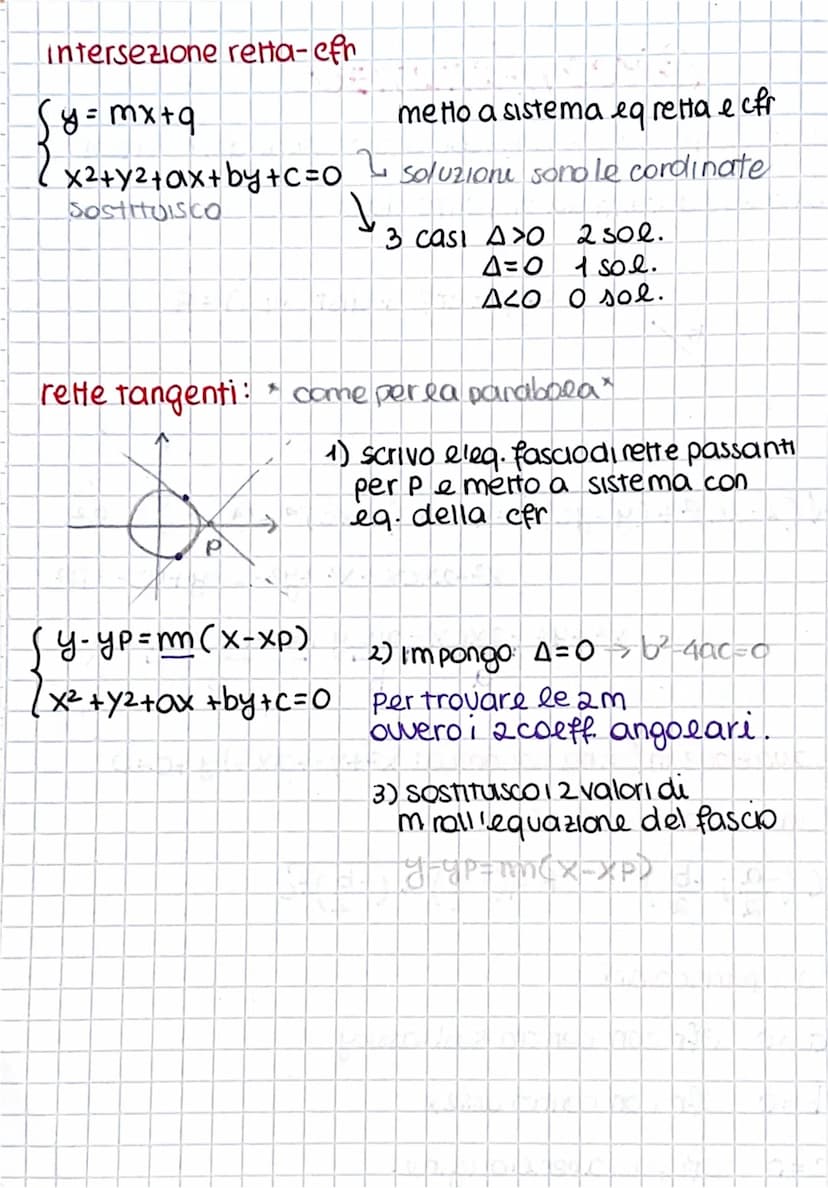 intersezione retta-cfr
y = mx+q
metto a sistema eq retta e cfr
x2+y2+ax+by+c=0
soluzioni sono le cordinate
sostituisco
3 casi Δ>0 2 sol.
Δ=0 1 sol.
Δ<0 0 sol.
rette tangenti: * come per la parabola*
1) scrivo l'eq. fascio di rette passanti
per P e metto a sistema con
eq. della cfr
P
y-yp=m(x-xp)
x2+y2+ax+by+c=0
2) Impongo Δ=0 → b2-4ac=0
per trovare le 2 m
ovvero i 2 coeff. angolari.
3) sostituisco i 2 valori di
m all'equazione del fascio
y-yp=m(x-xp)